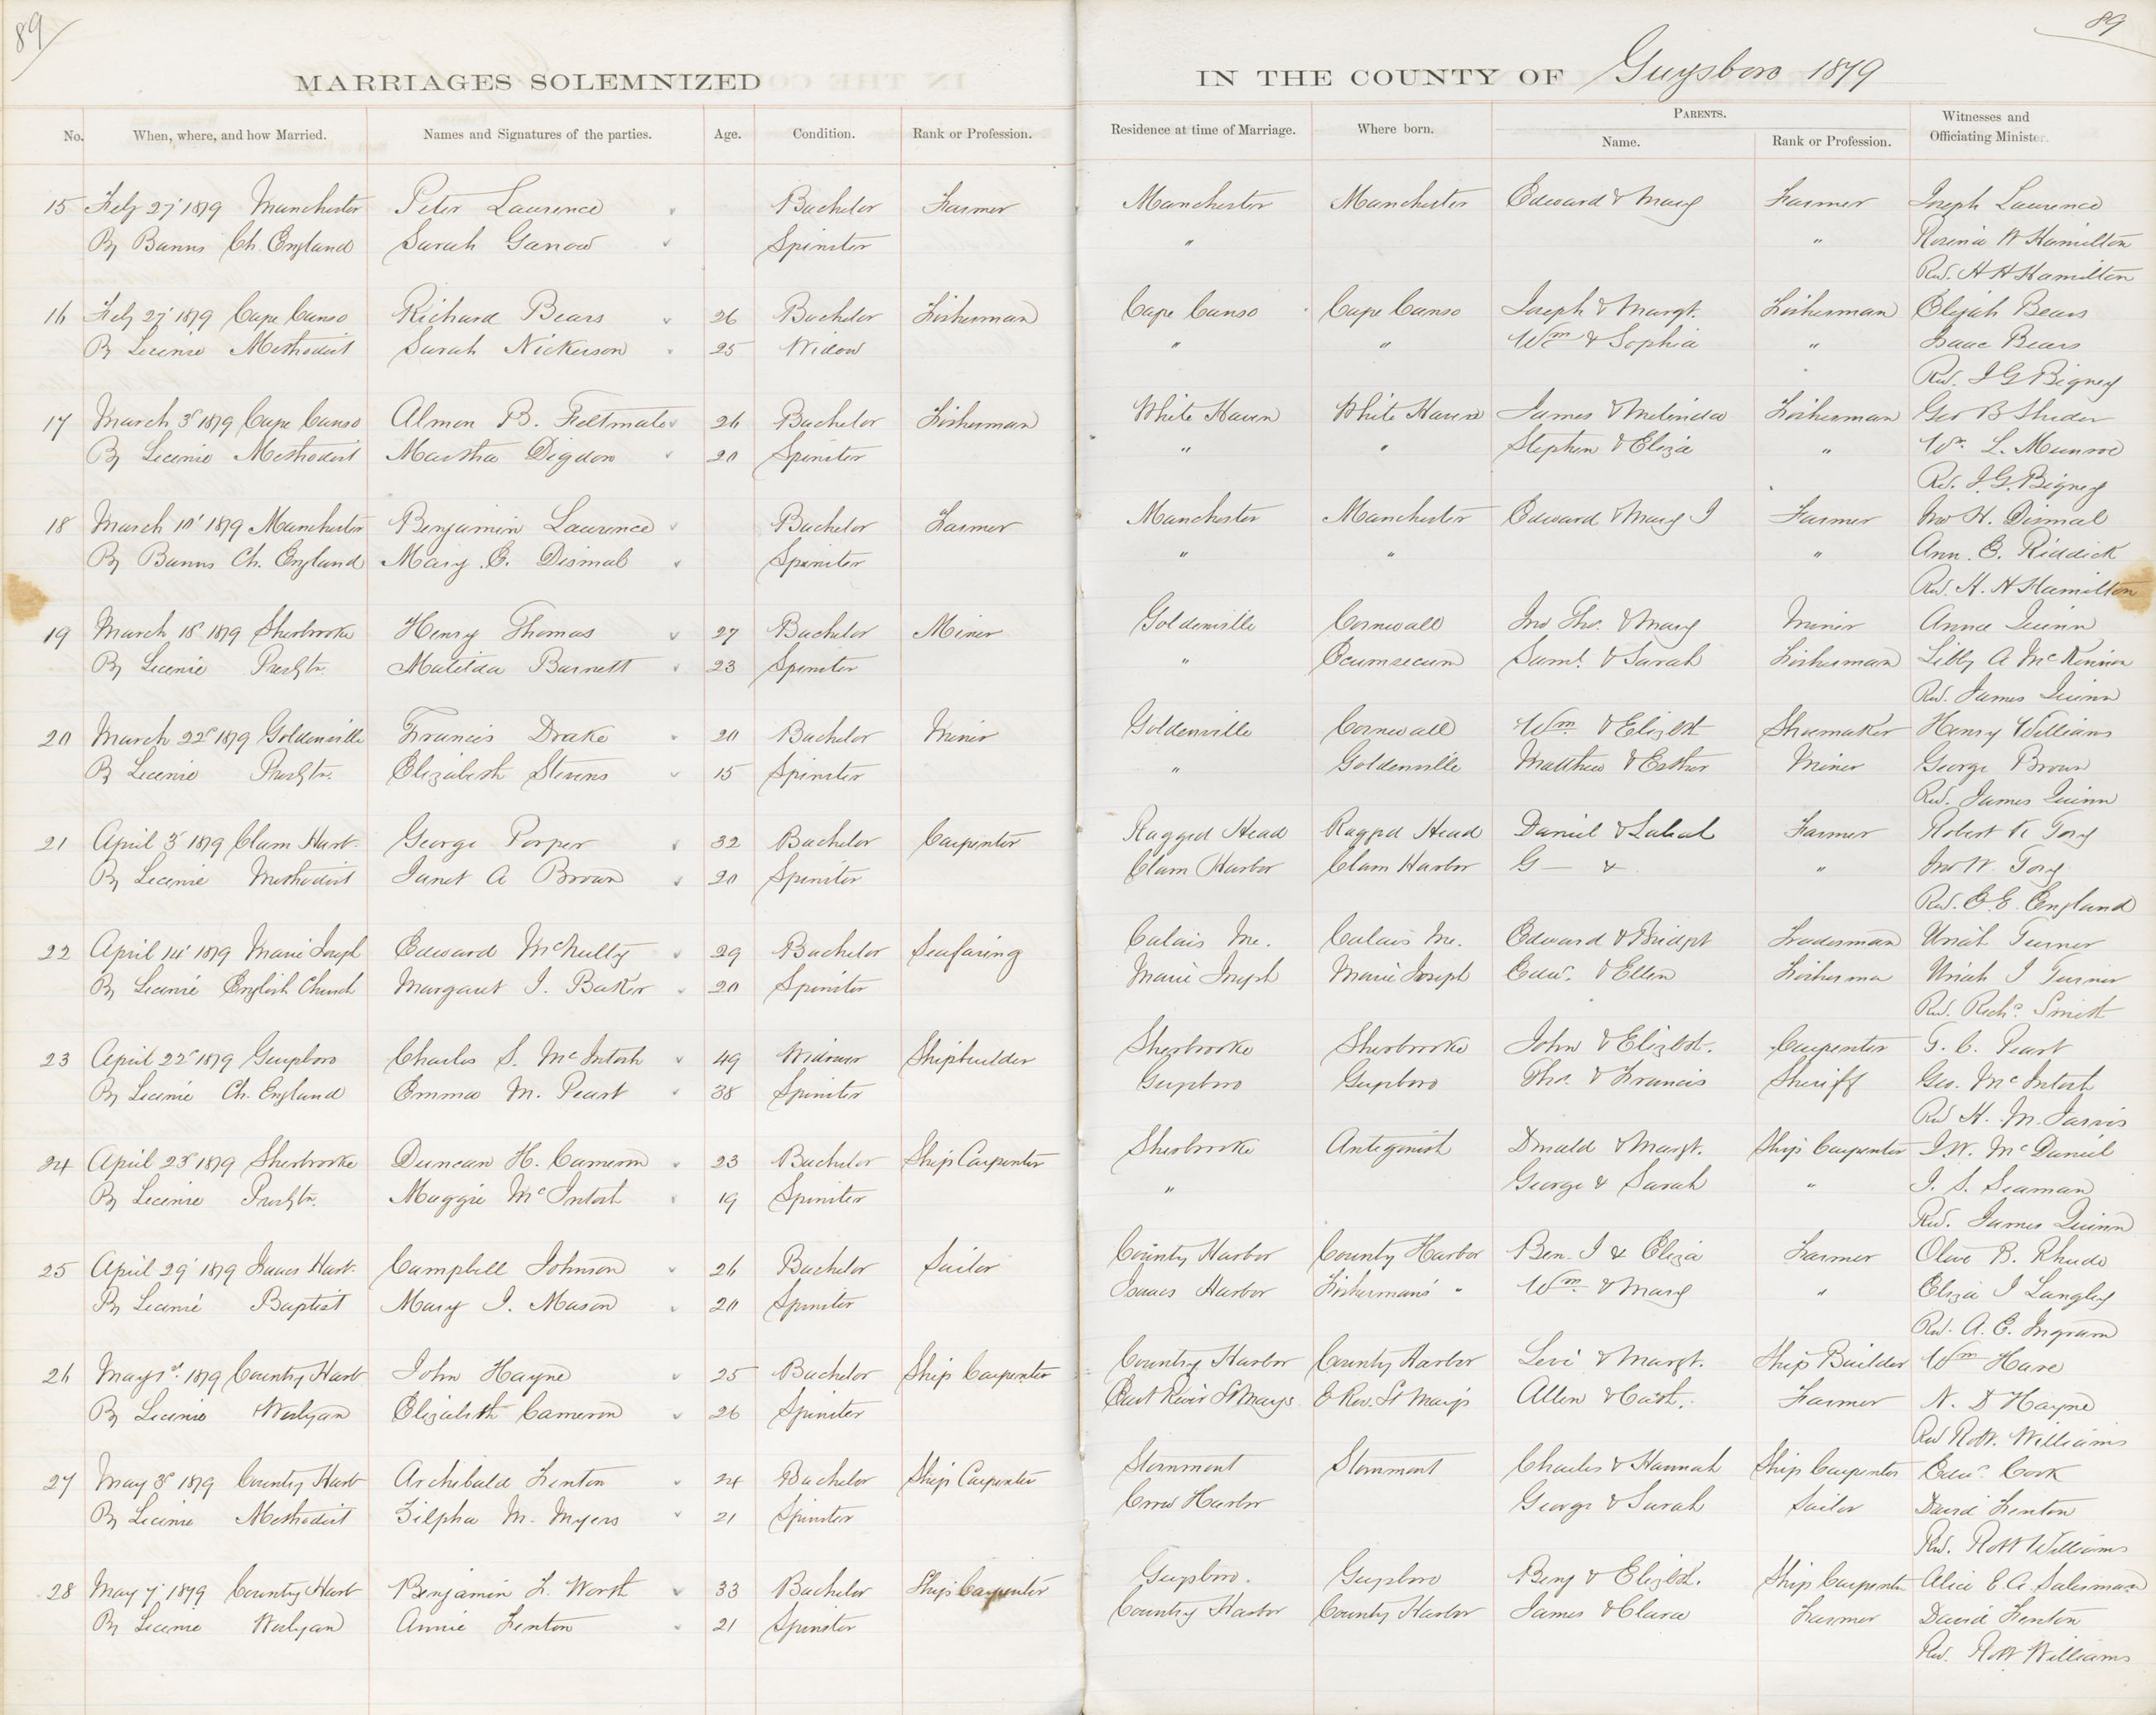 89
89
MARRIAGES SOLEMNIZED IN THE COUNTY OF Guysboro 1879
No. When, where, and how Married. Names and Signatures of the parties. Age. Condition. Rank or Profession. Residence at time of Marriage. Where born. PARENTS. Name. Rank or Profession. Witnesses and Officiating Minister.
15 Feby 27' 1879 Manchester Peter Laurence Bachelor Farmer Manchester Manchester Edward & Mary Farmer Joseph Laurence
By Banns Ch. England Sarah Spinster " " Rosenia W Hamilton
Rev. H H Hamilton
16 Feby 27' 1879 Cape Canso Richard Bears 26 Bachelor Fisherman Cape Canso Cape Canso Joseph & Margt. Fisherman Elijah Bears
By Licence Methodist Sarah Nickerson 25 Widow " " Wm & Sophia " Isaac Bears
Rev. J G Bigney
17 March 3d 1879 Cape Canso Almon B. Feltmate 26 Bachelor Fisherman White Haven White Haven James & Melinda Fisherman Geo B
By Licence Methodist Martha Digdon 20 Spinster " " Stephen & Eliza " Wm. L. Munroe
Rev. J. G. Bigney
18 March 10' 1879 Manchester Benjamin Laurence Bachelor Farmer Manchester Manchester Edward & Mary J Farmer Jno H. Dismal
By Banns Ch. England Mary E. Dismal Spinster " " " Ann. E. Riddick
Rev. H. H Hamilton
19 March 18' 1879 Sherbrooke Henry Thomas 27 Bachelor Miner Goldenville Cornwall Jno Tho. & Mary Miner Annie Quinn
By Licence Presbtn. Matilda Barnett 23 Spinster " Ecumsecum Saml. & Sarah Fisherman Libby A McKinnon
Rev. James Quinn
20 March 22d 1879 Goldenville Francis Drake 20 Bachelor Miner Goldenville Cornwall Wm. & Elizbt Shoemaker Henry Williams
By Licence Presbtn. Elizabeth Stevens 15 Spinster " Goldenville Matthew & Esther Miner George Brown
Rev. James Quinn
21 April 3' 1879 Clam Harb. George Porper 32 Bachelor Carpenter Ragged Head Ragged Head Daniel & Farmer Robert K Tory
By Licence Methodist Janet A Brown 20 Spinster Clam Harbor Clam Harbor G— & " Jno W. Tory
Rev. E. E. England
22 April 14' 1879 Marie Joseph Edward McNulty 29 Bachelor Seafaring Calais Me. Calais Me. Edward & Bridgt Uriah Turner
By Licence English Church Margaret J. Baker 20 Spinster Marie Joseph Marie Joseph Edwd. & Ellen Fisherma Uriah J Turner
Rev. Richd. Smith
23 April 22d 1879 Guysboro Charles S. McIntosh 49 Widower Shipbuilder Sherbrooke Sherbrooke John & Elizbt. Carpenter T. C. Peart
By Licence Ch. England Emma M. Peart 38 Spinster Guysboro Guysboro Thos. & Francis Sheriff Geo. McIntosh
Rev H. M. Jarvis
24 April 23d 1879 Sherbrooke Duncan H. Cameron 23 Bachelor Ship Carpenter Sherbrooke Antigonish Donald & Margt. Ship Carpenter J. W. McDaniel
By Licence Presbtn. Maggie McIntosh 19 Spinster " George & Sarah " J. S. Seaman
Rev. James Quinn
25 April 29' 1879 Isaacs Harb. Campbell Johnson 26 Bachelor Sailor County Harbor County Harbor Ben. J & Eliza Farmer Olive B. Rhude
By Licence Baptist Mary J. Mason 20 Spinster Isaacs Harbor Fishermans " Wm. & Mary " Eliza J Langley
Rev. A. E. Ingram
26 May 1st. 1879 Country Harb John Hayne 25 Bachelor Ship Carpenter Country Harbor County Harbor Levi & Margt. Ship Builder Wm Hare
By Licence Weslyan Elizabeth Cameron 26 Spinster East River St Marys E Rev. St Marys Allen & Cath. Farmer N. D Hayne
Rev Robt. Williams
27 May 3d 1879 Country Harb Archibald Fenton 24 Bachelor Ship Carpenter Stormont Stormont Charles & Hannah Ship Carpenter Edwd. Cook
By Licence Methodist Zilpha M. Myers 21 Spinster Crow Harbor George & Sarah Sailor David Fenton
Rev. Robt Williams
28 May 7' 1879 County Harb Benjamin F. Worth 33 Bachelor Ship Carpenter Guysboro. Guysboro Benj & Elizbt. Ship Carpenter Alice E. A. Salesman
By Licence Weslyan Annie Fenton 21 Spinster Country Harbor County Harbor James & Clara Farmer David Fenton
Rev. Robt Williams